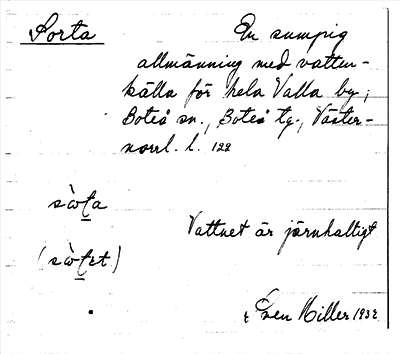 Sorta
En sumpig
allmänning med vatten-
källa för hela Valla by,
Boteå sn., Boteå tg., Väster-
norrl. l. 122
sòʈa
Vattnet är järnhaltigt
(sòʈɛt)
Sven Miller 1932